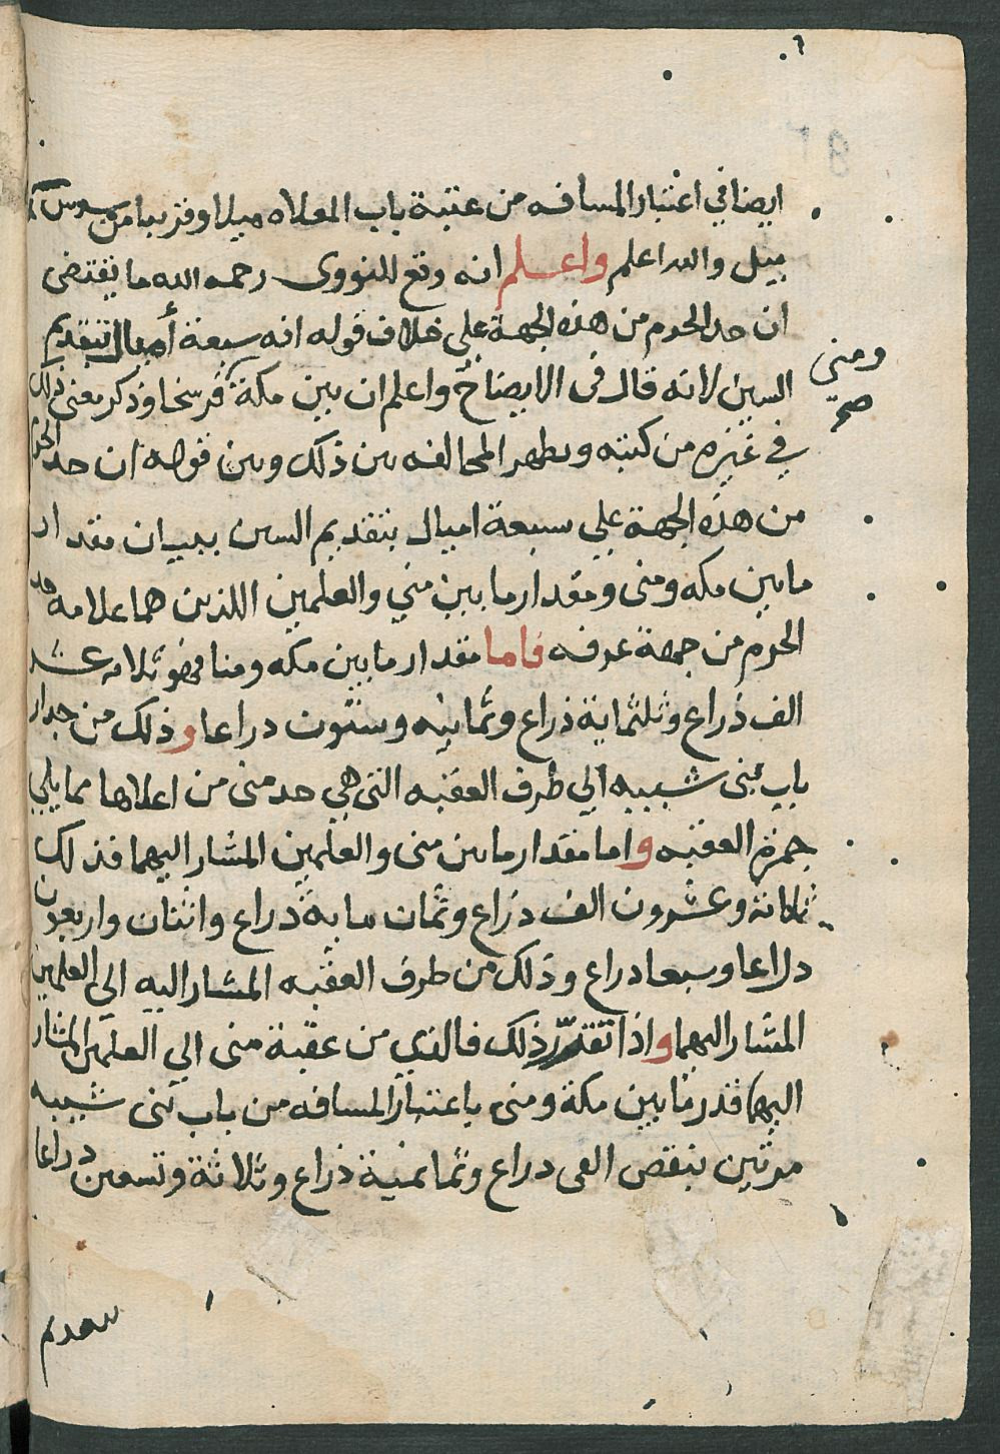 ٩
ايضا في اعتبار المسافه من عتبة باب المعلاه ميلا وقريبا من سدس
ميل والله اعلم واعلم انه وقع للنووى رحمه الله ما يقتضى
ان حد الحرم من هذه الجهة على خلاف قوله انه سبعة أميال بتقديم
ومنى
صح
السين لانه قال فى الايضاح واعلم ان بين مكة فرسخا وذكر معنى ذلك
في غيره من كتبه ويظهر المخالفه بين ذلك وبين قوله ان حد الحرم
من هذه الجهة علي سبعة اميال بتقديم السين ببيان مقدار
ما بين مكه ومنى ومقدار ما بين مني والعلمين اللذين هما علامه حد
الحرم من جهة عرفه فاما مقدار ما بين مكه ومنا فهو ثلاثه عشر
الف ذراع وثلثماية ذراع وثمانيه وستون دراعا وذلك من جدار
باب بنى شيبه الي طرف العقبه التى هي حد منى من اعلاها مما يلي
جمرة العقبه واما مقدار ما بين منى والعلمين المشار اليهما فذلك
ثلاثة وعشرون الف ذراع وثمان مايه ذراع واثنان واربعون
دراعا وسبعا دراع وذلك من طرف العقبه المشار اليه الى العلمين
المشار اليهما واذا تقرر ذلك فالذي من عقبة منى الي العلمين المشار
اليهما قدر ما بين مكة ومنى باعتبار المسافه من باب بنى شيبه
مرتين بنقص الفى دراع وثمانمية ذراع وثلاثة وتسعين دراعا